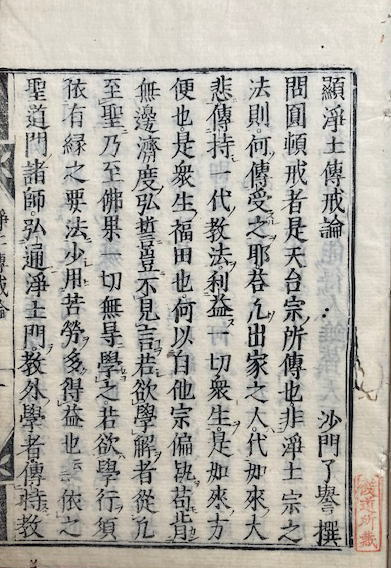 顯淨土傳戒論　沙門了譽撰
問圓頓戒者是天台宗所傳也非淨土宗之
法則何傳受之耶答凡出家之人代如來大
悲傳持一代教法利益一切衆生是如來方
便也是衆生福田也何以自他宗偏執苟背
無邊濟度弘誓豈不見言若欲學解者從凡
至聖乃至佛果一切無㝵學之若欲學行須
依有縁之要法少用苦勞多得益也依之
聖道門諸師弘通淨土門教外學者傳持教
淨土傳戒論
道所藏